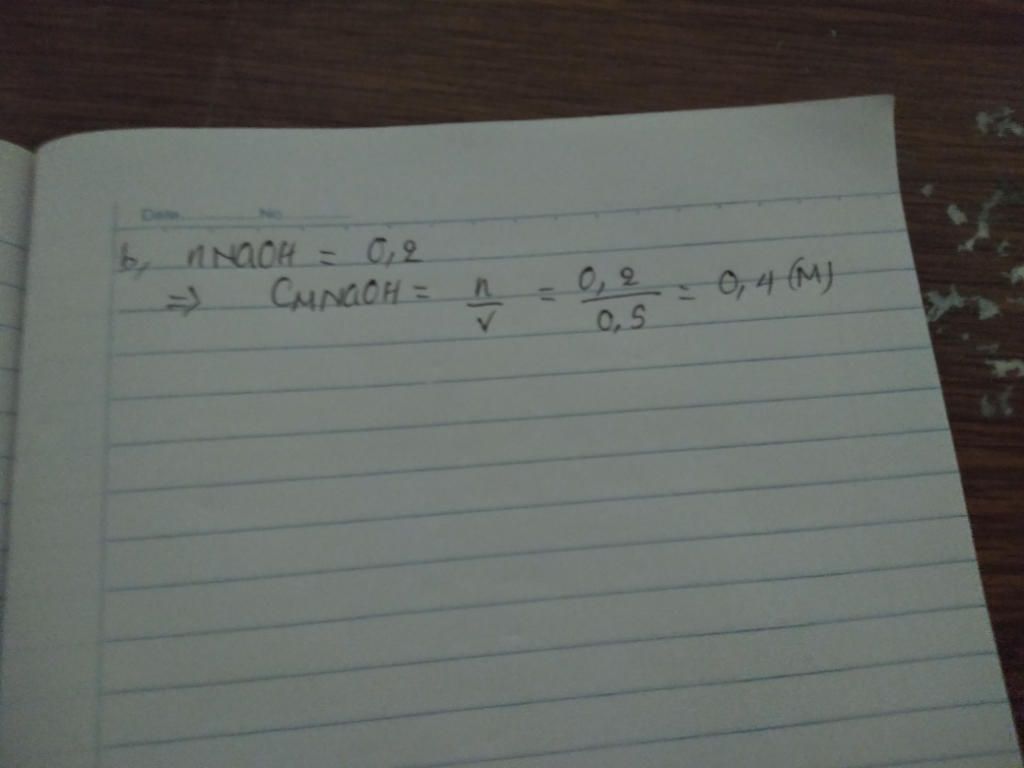 Date No
b, nNaOH = 0,2
=> CMNaOH = n/v = 0,2/0,5 = 0,4 (M)